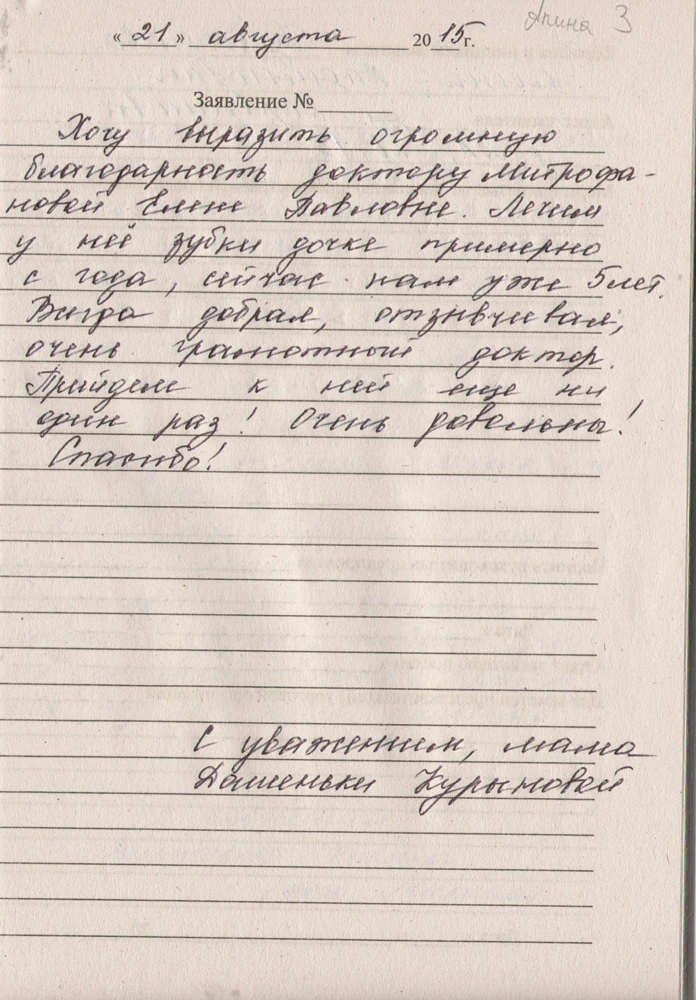 Арина 3
« 21 » августа 2015г.
Заявление № ______
Хочу выразить огромную
благодарность доктору Митрофа-
новой Елене Павловне. Лечим
у неё зубки дочке примерно
с года, сейчас нам уже 5 лет.
Всегда добрая, отзывчивая,
очень грамотный доктор.
Прийдем к ней еще ни
один раз! Очень довольны!
Спасибо!
С уважением, мама
Дашеньки Курыновой